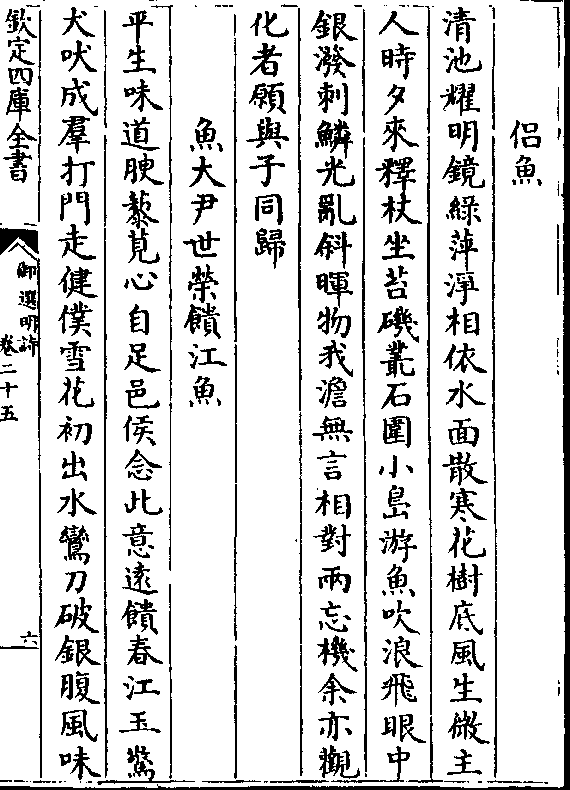 侣魚
清池耀明鏡綠萍淨相依水面散寒花樹底風生微主
人時夕來釋杖坐苔磯叢石圍小島游魚吹浪飛眼中
銀潑刺鱗光亂斜暉物我澹無言相對兩忘機余亦觀
化者願與子同歸
魚大尹世榮饋江魚
平生味道腴藜莧心自足邑侯念此意遠饋春江玉驚
犬吠成羣打門走健僕雪花初出水鸞刀破銀腹風味
欽定四庫全書
御選明詩
卷二十五
六